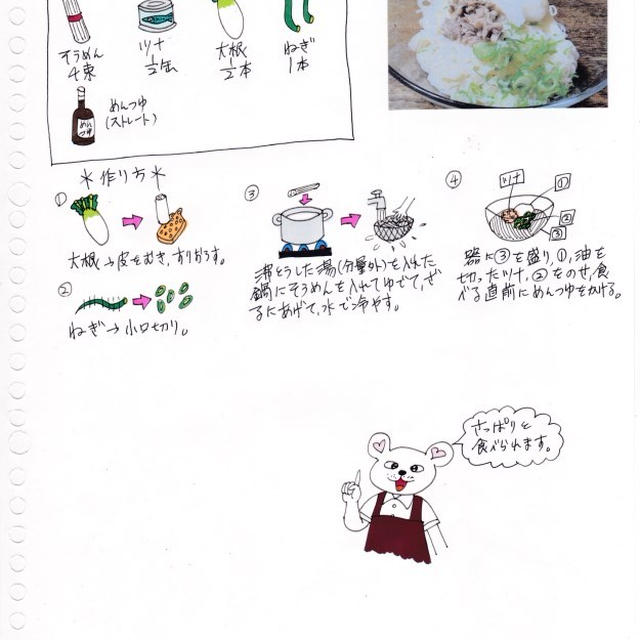 そうめん
4束
ツナ
1/2缶
大根
1/2本
ねぎ
1本
めんつゆ
めんつゆ
(ストレート)
*作り方*
①
大根→皮をむき、すりおろす。
②
ねぎ→小口切り。
③
沸とうした湯(分量外)を入れた
鍋にそうめんを入れてゆでて、ざ
るにあげて、水で冷やす。
④
ツナ
①
②
③
器に③を盛り、①、油を
切ったツナ、②をのせ、食
べる直前にめんつゆをかける。
さっぱりと
食べられます。